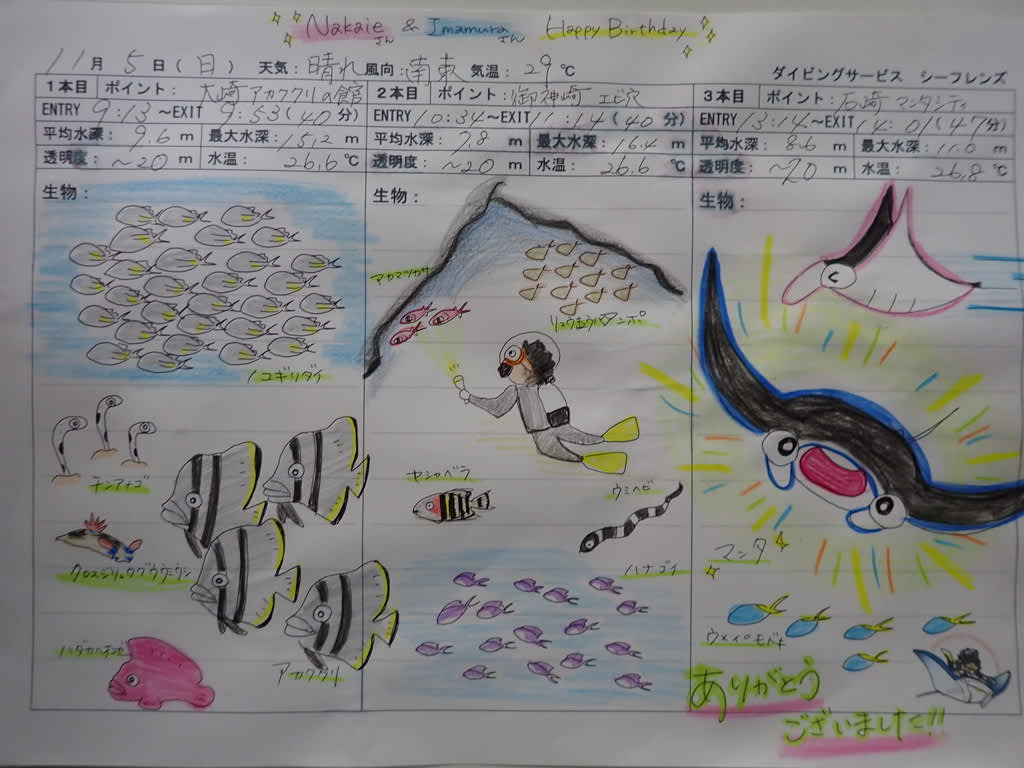 Nakaieさん & Imamuraさん Happy Birthday
11月 5日(日) 天気:晴れ 風向:南東 気温:29℃
ダイビングサービス シーフレンズ
1本目 ポイント:大崎アカククリの館
ENTRY 9:13~EXIT 9:53(40分)
平均水深:9.6m 最大水深:15.2m
透明度:~20m 水温:26.6℃
生物:
ノコギリダイ
チンアナゴ
クロスジリュウグウウミウシ
ハダカハオコゼ
アカククリ
2本目 ポイント:御神崎 エビ穴
ENTRY 10:34~EXIT 11:14(40分)
平均水深:7.8m 最大水深:16.4m
透明度:~20m 水温:26.6℃
生物:
アカマツカサ
リュウキュウハタンポ
ヤシャベラ
ウミヘビ
ハナゴイ
3本目 ポイント:石崎 マンタシティ
ENTRY 13:14~EXIT 14:01(47分)
平均水深:8.6m 最大水深:11.0m
透明度:~20m 水温:26.8℃
生物:
マンタ
ウメイロモドキ
ありがとう
ございました!!